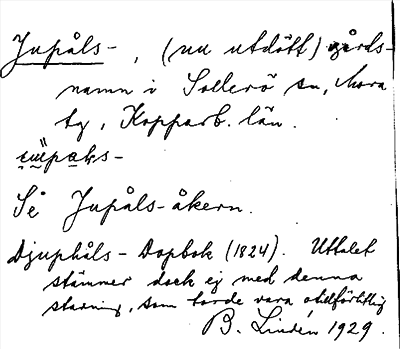 Jupåls-, (nu utdött) gårds-
namn i Sollerö sn, Mora
tg, Kopparb. län.
Se Jupåls-åkern.
Djuphåls- Dopbok (1824). Uttalet
stämmer dock ej med denna
stavning, som torde vara otillförlitlig
B. Lindén 1929.